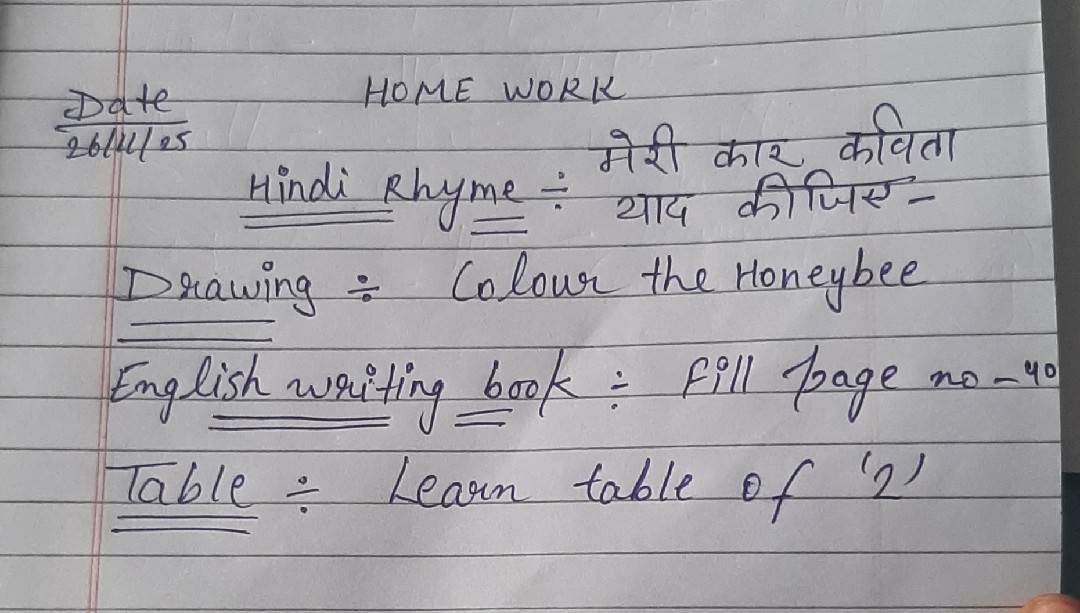 HOME WORK
Date
26/11/25
मेरी कार कविता
Hindi Rhyme ÷ याद कीजिए -
Drawing ÷ Colour the Honeybee
English writing book ÷ Fill page no - 40
Table ÷ Learn table of '2'